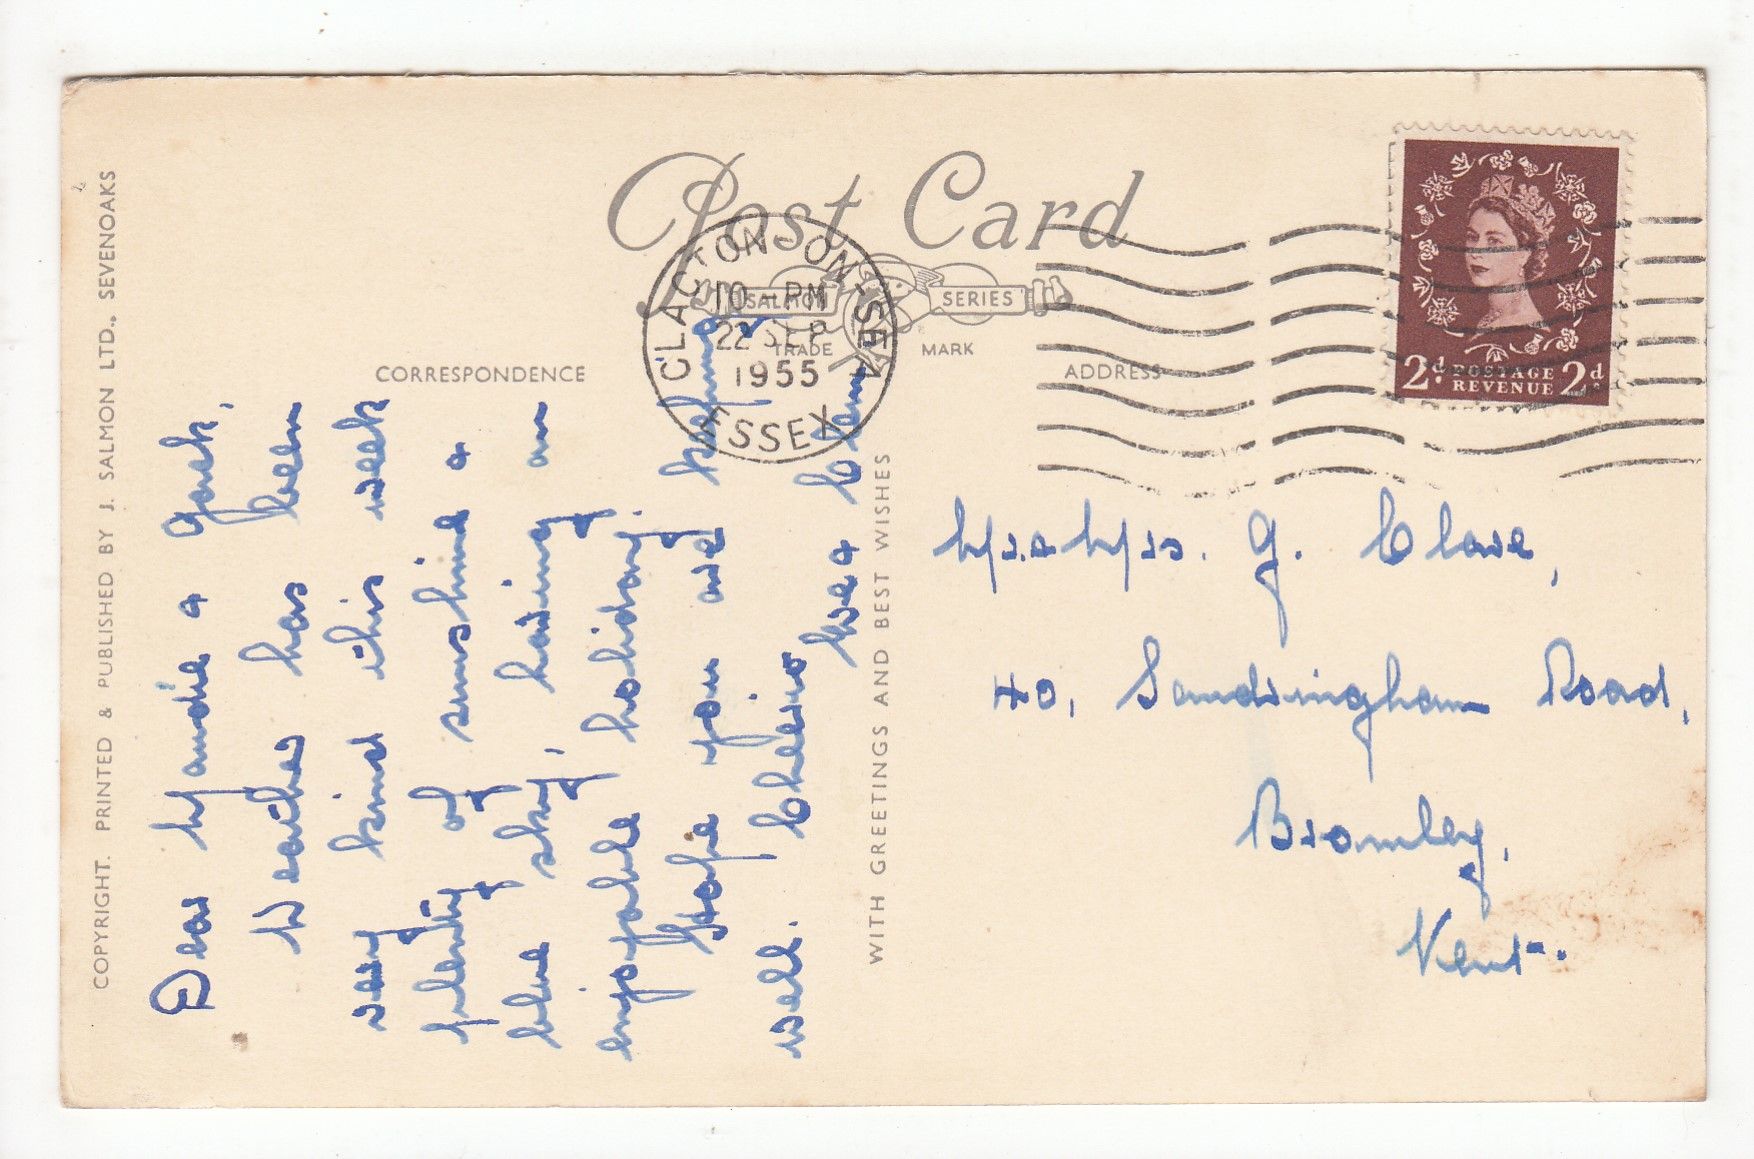 COPYRIGHT. PRINTED & PUBLISHED BY J. SALMON LTD., SEVENOAKS
Post Card
SALMON SERIES
TRADE MARK
CLACTON-ON-SEA
10 - PM
22 SEP
1955
ESSEX
2d. POSTAGE REVENUE 2d.
CORRESPONDENCE
ADDRESS
Dear Maudie &
Weather has been
very kind this week
plenty of sunshine &
blue sky, having an
enjoyable holiday.
Hope you are keeping
well. Cheerio
& Clem
WITH GREETINGS AND BEST WISHES
Mr. & Mrs. G. Clare,
40, Sandringham Road,
Bromley,
Kent.